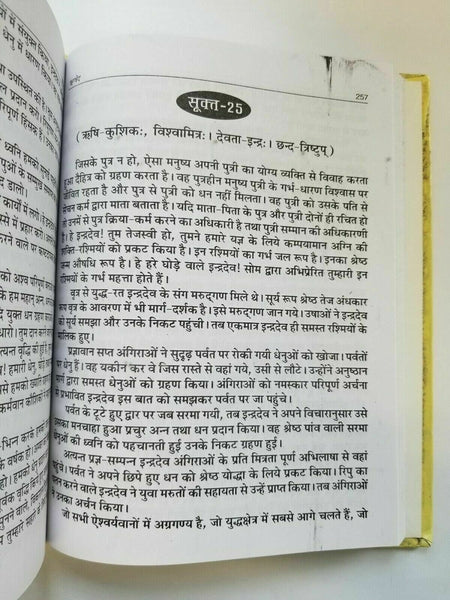 ऋग्वेद
257
सूक्त-25
(ऋषि-कुशिकः, विश्वामित्रः। देवता-इन्द्रः। छन्द-त्रिष्टुप्)
जिसके पुत्र न हो, ऐसा मनुष्य अपनी पुत्री का योग्य व्यक्ति से विवाह करता
हुआ दौहित्र को ग्रहण करता है। वह पुत्रहीन मनुष्य पुत्री के गर्भ-धारण विश्वास पर
जीवित रहता है और पुत्र से पुत्री को धन नहीं मिलता। वह पुत्री को उसके पति से
सेंचन कर्म द्वारा माता बताता है। यदि माता-पिता के पुत्र और पुत्री दोनों ही रचित हो
तो उनमें से पुत्र क्रिया-कर्म करने का अधिकारी है तथा पुत्री सम्मान की अधिकारणी
है। हे इन्द्रदेव! तुम तेजस्वी हो, तुमने हमारे यज्ञ के लिये कम्पायमान अग्नि की
शक्ति-रश्मियों को प्रकट किया है। इन रश्मियों का गर्भ जल रूप है। इनका श्रेष्ठ
जन्म औषधि रूप है। हे हरे घोड़े वाले इन्द्रदेव! सोम द्वारा अभिप्रेरित तुम्हारी इन
रश्मियों के गर्भ महत्ता होते हैं।
वृत्र से युद्ध-रत इन्द्रदेव के संग मरुद्गण मिले थे। सूर्य रूप श्रेष्ठ तेज अंधकार
रूप वृत्र के आवरण में भी मार्ग-दर्शक है। इसे मरुद्गण जान गये। उषाओं ने इन्द्रदेव
को सूर्य समझा और उनके निकट पहुंची। तब एकमात्र इन्द्रदेव ही समस्त रश्मियों के
मालिक हुए।
प्रज्ञावान सप्त अंगिराओं ने सुदृढ़ पर्वत पर रोकी गयी धेनुओं को खोजा। पर्वतों
पर धेनु हैं। वह यकीन कर वे जिस रास्ते से वहां गये, उसी से लौटे। उन्होंने अनुष्ठान
मार्ग द्वारा समस्त धेनुओं को ग्रहण किया। अंगिराओं को नमस्कार परिपूर्ण अर्चना
में प्रभावित इन्द्रदेव इस बात को समझकर पर्वत पर जा पहुंचे।
पर्वत के टूटे हुए द्वार पर जब सरमा गयी, तब इन्द्रदेव ने अपने विचारानुसार उसे
उसका मनचाहा हुआ प्रचुर अन्न तथा धन प्रदान किया। वह श्रेष्ठ पांव वाली सरमा
धेनुओं की ध्वनि को पहचानती हुई उनके निकट ग्रहण हुई।
अत्यन्त प्रज्ञ-सम्पन्न इन्द्रदेव अंगिराओं के प्रति मित्रता पूर्ण अभिलाषा से वहां
पहुंचे। पर्वत ने अपने छिपे हुए धन को श्रेष्ठ योद्धा के लिये प्रकट किया। रिपु का
पतन करने वाले इन्द्रदेव ने युवा मरुतों की सहायता से उन्हें प्राप्त किया। तब अंगिराओं
ने उनका अर्चन किया।
जो सभी ऐश्वर्यवानों में अग्रगण्य है, जो युद्धक्षेत्र में सबसे आगे चलते हैं, जो